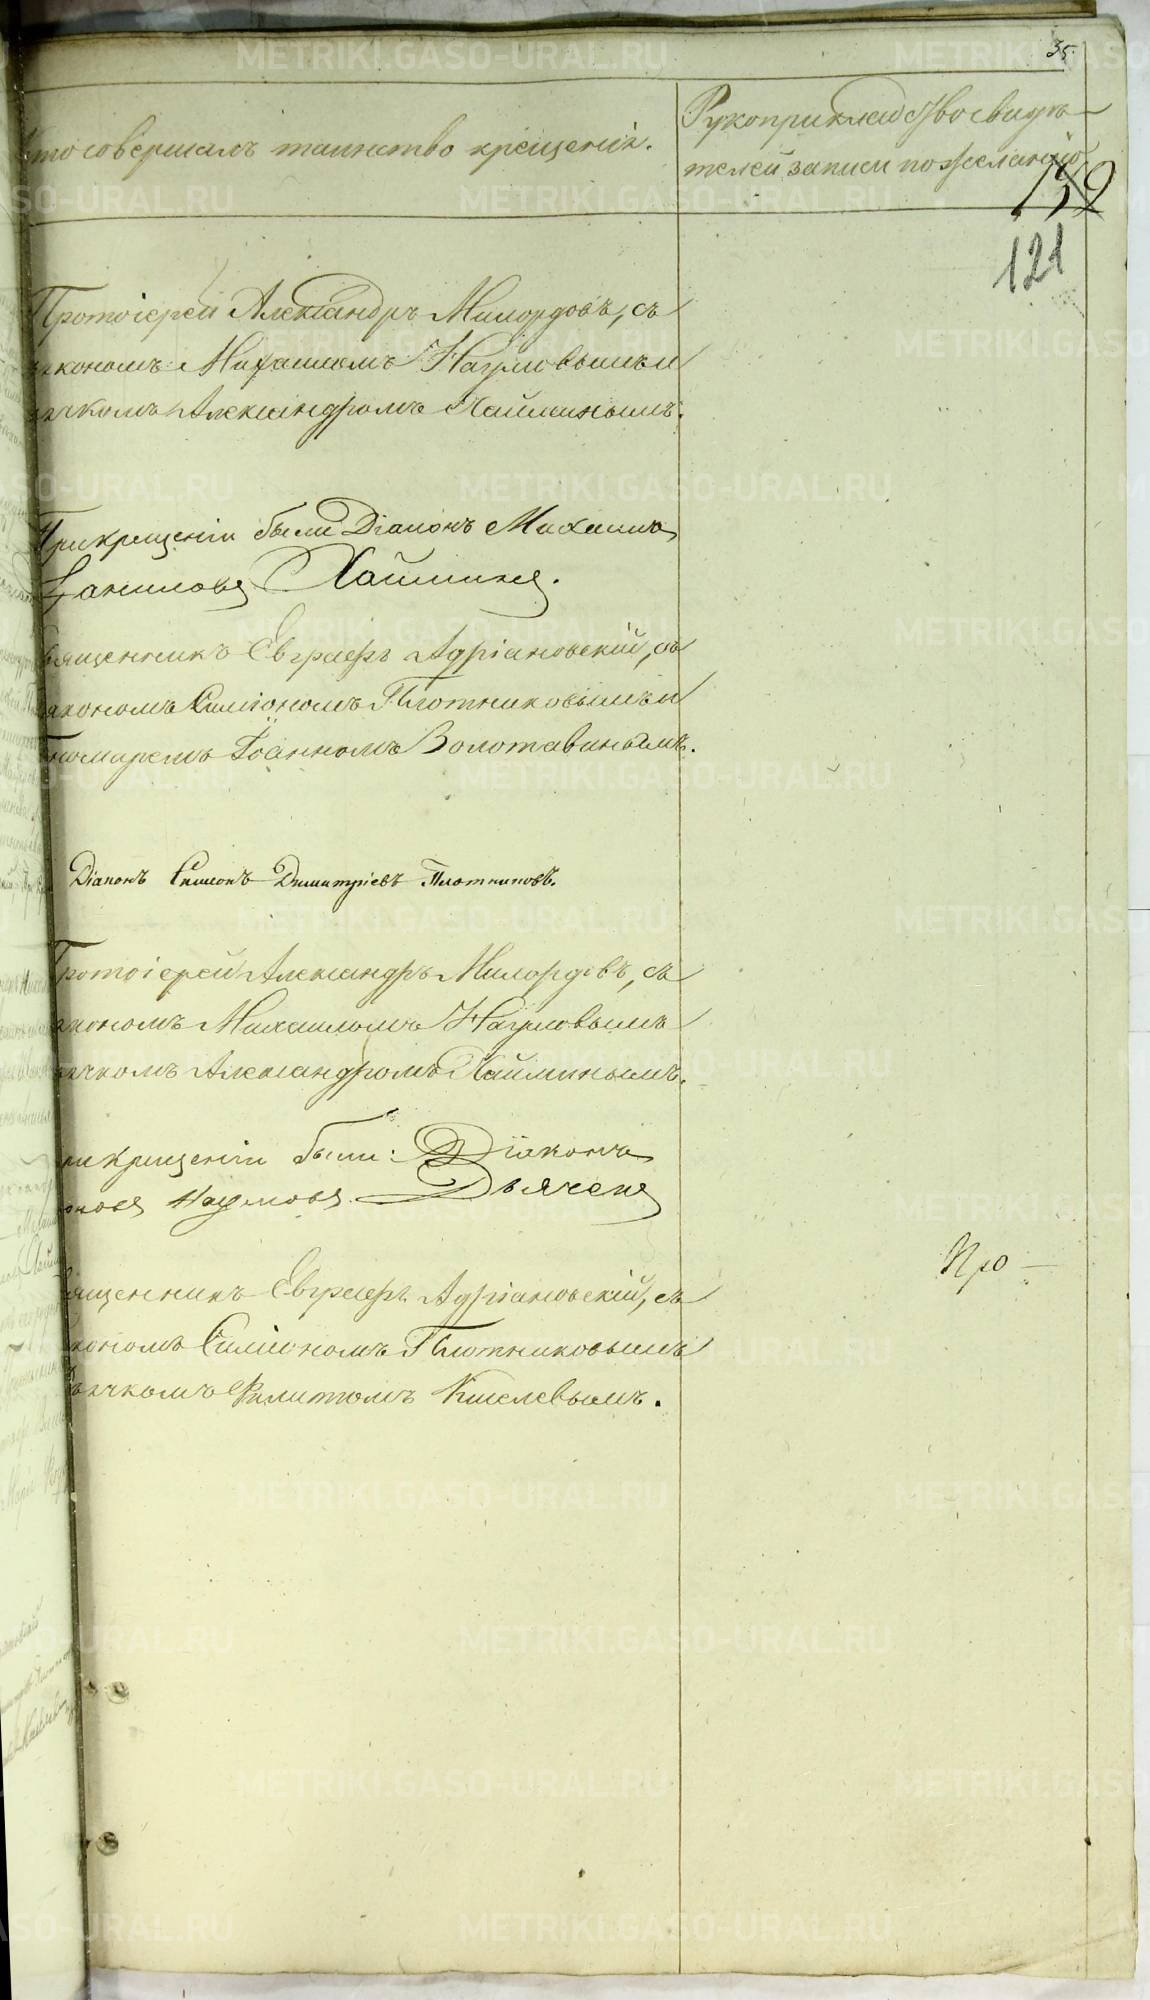 35.
Кто совершалъ таинство крещенія.
Рукоприкладство свидѣ-
телей записи по желанію
152
121
Протоіерей Александръ Милордовъ, съ
діакономъ Михаиломъ Наумовымъ и
дьячкомъ Александромъ Хайминымъ.
При крещеніи были Діаконъ Михаилъ
Хайминъ.
Священникъ Евграфъ Адріановскій, съ
діакономъ Симеономъ Плотниковымъ и
пономаремъ Іоанномъ Золотавинымъ.
Діаконъ Симеонъ Димитріевъ Плотниковъ.
Протоіерей Александръ Милордовъ, съ
діакономъ Михаиломъ Наумовымъ
дьячкомъ Александромъ Хайминымъ.
При крещеніи были: Діаконъ
Наумовъ. Дьячекъ
Священникъ Евграфъ Адріановскій, съ
діакономъ Симеономъ Плотниковымъ
дьячкомъ Филитомъ Киселевымъ.
Про —